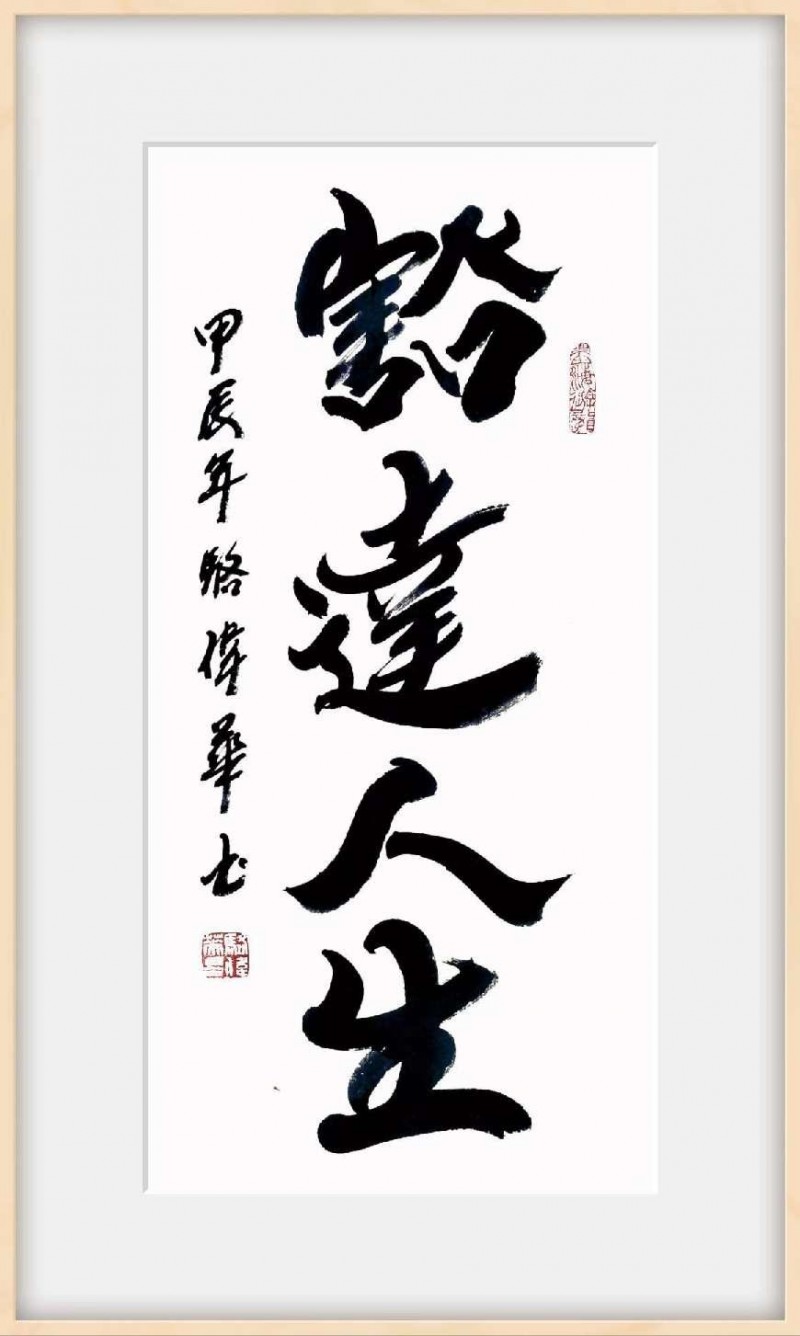 豁達人生
甲辰年駱偉華书